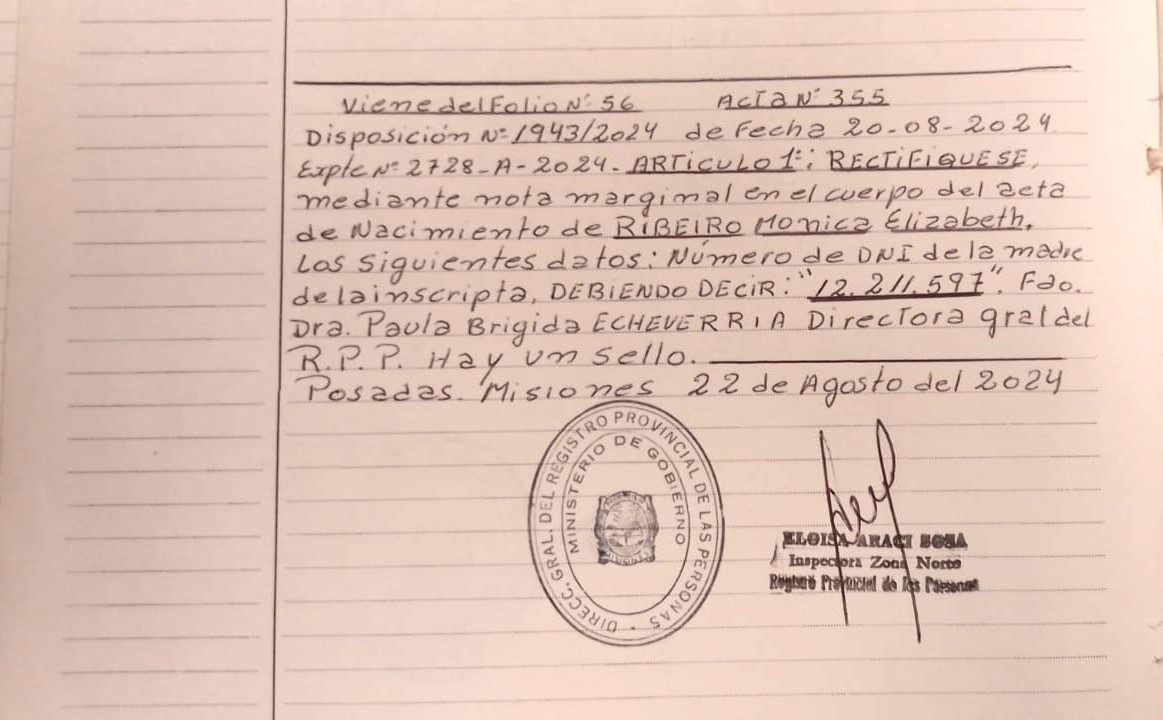 Viene del Folio Nº 56 Acta Nº 355
Disposición Nº 1943/2024 de Fecha 20-08-2024
Expte Nº 2728-A-2024. ARTICULO 1º: RECTIFIQUESE,
mediante nota marginal en el cuerpo del acta
de Nacimiento de RIBEIRO Monica Elizabeth,
Los siguientes datos: Número de DNI de la madre
de la inscripta, DEBIENDO DECIR: "12.211.597". Fdo.
Dra. Paula Brigida ECHEVERRIA Directora gral del
R.P.P. Hay un sello.
Posadas. Misiones 22 de Agosto del 2024
DIRECC. GRAL. DEL REGISTRO PROVINCIAL DE LAS PERSONAS
MINISTERIO DE GOBIERNO
ELOISA ARACI SOSA
Inspectora Zona Norte
Registro Provincial de las Personas